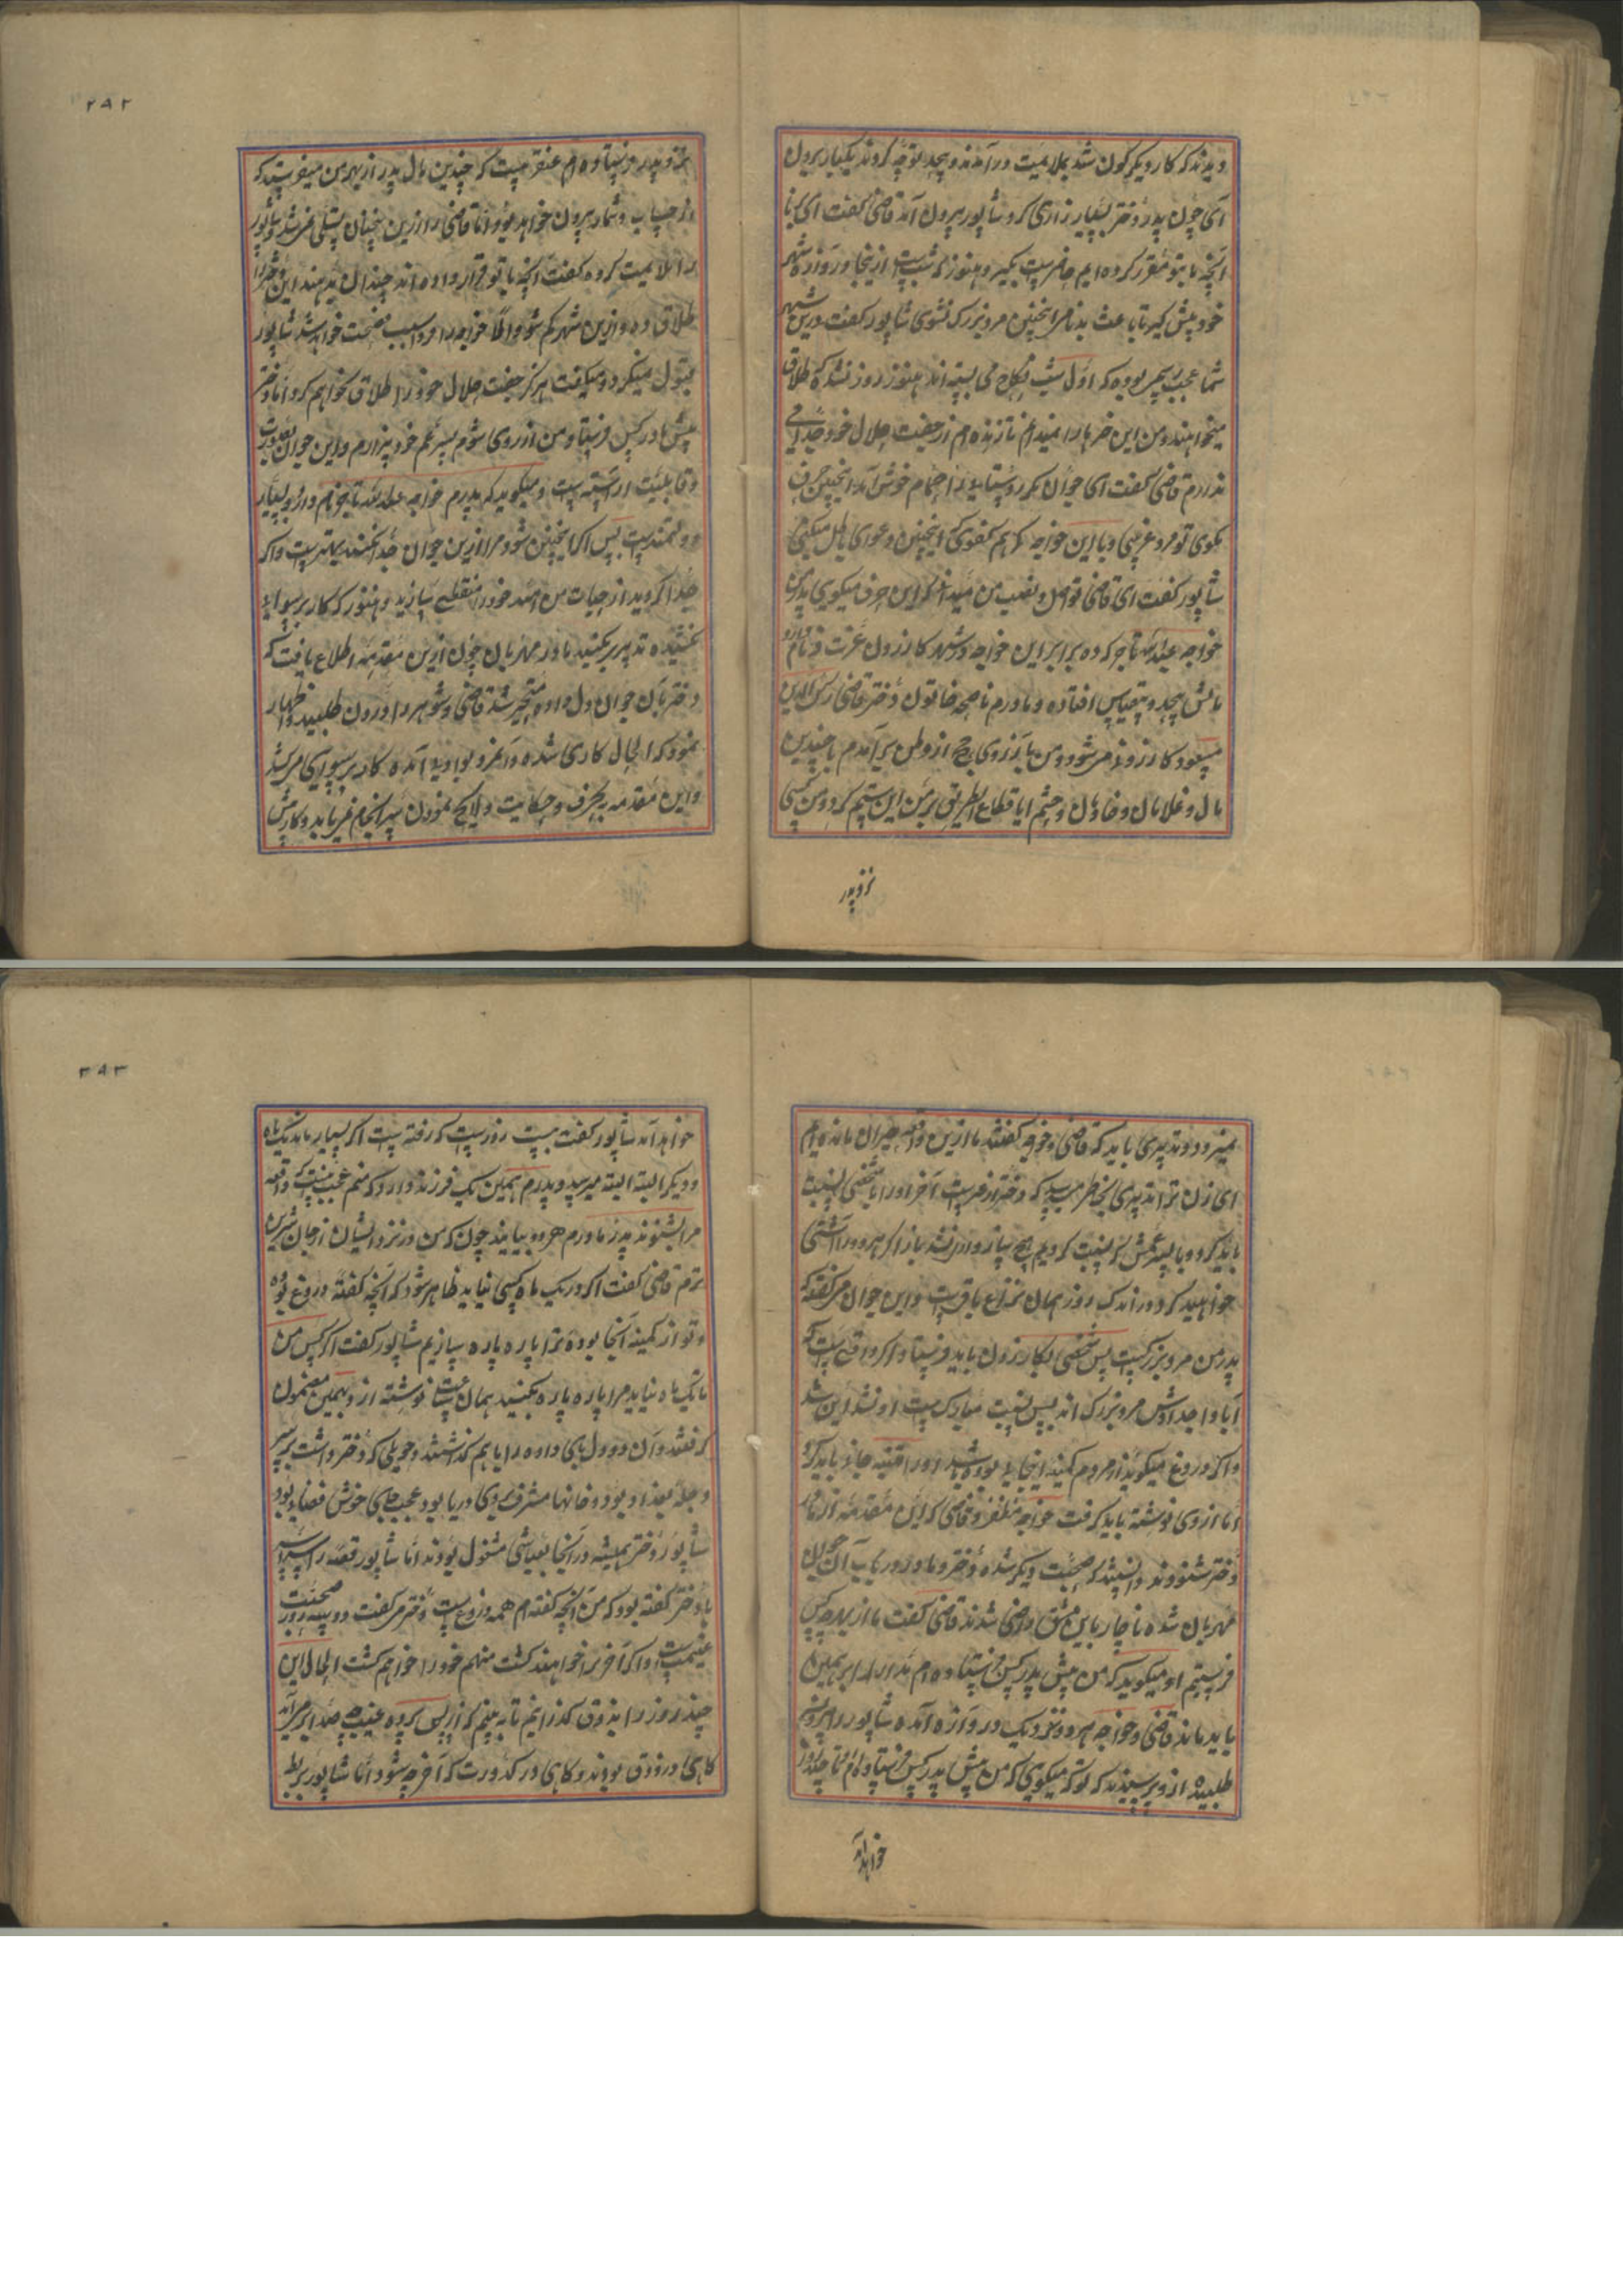 دیدند که کار دیگرگون شد بملایمت درآمدند و بجد توجه کردند یکبار بیرون
آی چون پدر دختر بسیار زاری کرد شاپور بیرون آمد قاضی گفت ای
آنچه با تو مقرر کرده ایم حاضرست بگیر و هنوز که شب ست ازینجا در رو و راه شهر
خود پیش گیر تا باعث بدنامی اینچنین مرد بزرگ نشوی شاپور گفت درین شهر
شما عجب بوده که اول شب نکاح می بسته اند هنوز روز نشده که طلاق
میخواهند من این خبرها را نمیدانم تا زنده ام از جفت حلال خود جدایی
ندارم قاضی گفت ای جوان مگر روستایی از حمام خوش آمد اینچنین حرف
مگوی تو مرد غریبی و با این خواجه که هم کفو کی اینچنین دعوای باطل میکنی
شاپور گفت ای قاضی تو اصل و نسب من نمیدانی که این حرف میگویی پدر من
خواجه عبدالله تاجر که ده برابر این خواجه در شهر کازرون عزت و نام دارد و
مالش بیحد و بیقیاس افتاده و مادرم ناصحه خاتون دختر قاضی رکن الدین
مسعود کازرونی میشود و من بآرزوی حج از وطن برآمدم با چندین
مال و غلامان و خادمان و حشم اما قطاع الطریق بر من این ستم کرد و من کسی
نزد پدر
۲۸۲
نزد پدر فرستاده ام عنقریب ست که چندین مال پدر از بهر من میفرستد که
از حساب و شمار بیرون خواهد بود اما قاضی را ازین سخنان تسلی نمی شد شاپور
را ملایمت کرده گفت آنچه با تو قرار داده اند چندان بدهند این دختر را
طلاق ده و ازین شهر گم شو والا خواجه را سبب فضیحت خواهد شد شاپور
قبول نمیکرد و میگفت هرگز جفت حلال خود را طلاق نخواهم کرد اما دختر
پیش مادر کس فرستاد و من از روی شوم پسر عم خود بیزارم و این جوان بصورت
و قابلیت آراسته است و میگوید که پدرم خواجه عبدالله تاجر نام دارد و بسیار
دولتمندست پس اگر اینچنین شود مرا ازین جوان جدا نکنند بهترست و اگر
جدا کردید از حیات من امید خود را منقطع سازید و هنوز که کار برسوایی
نکشیده تدبیر بکنید مادر مهربان چون ازین مقدمه اطلاع یافت که
دختر بآن جوان دل داده متحیر شد قاضی و شوهر را درون طلبید و اظهار
نمود که الحال کاری شده و آبرو بباد آمده کار برسوایی میکشد
و این مقدمه بحرف و حکایت و لابه نمودن سرانجام نمی یابد و کار پیش
نمیرود و تدبیری باید که قاضی و خواجه گفتند ما ازین واقعه حیران مانده ایم
ای زن ترا تدبیری بخاطر میرسد که دختر از تست آخر او را با شخصی نسبت
باید کرد و با پسر عمش که نسبت کردیم هیچ سازوار نشد باز اگر هر دو را آشتی
خواهید کرد در اندک روز همان نزاع باقی ست و این جوان میگفت که
پدر من مرد بزرگیست پس شخصی بکازرون باید فرستاد اگر واقعی ست که
آبا و اجدادش مرد بزرگ اند پس نسبت مبارکست او نشد این شد
و اگر دروغ میگوید از مردم کمینه اینجایی بوده باشد او را تنبیه جانه باید کرد
اما از وی نوشته باید گرفت خواجه مظفر و قاضی که این مقدمه از مادر
دختر شنودند دانستند که صحبت دیگر شده دختر و مادر در باب آن جوان
مهربان شده ناچار باین شق راضی شدند قاضی گفت ما از بهر چه کس
فرستیم او میگوید که من پیش پدر کس فرستاده ام مدار را بر همین
باید ماند قاضی و خواجه هر دو نزدیک دروازه آمده شاپور را بیرون
طلبیده ازو پرسیدند که تو که میگویی که من پیش پدر کس فرستاده ام تا چند روز
خواهد آمد
۲۸۳
خواهد آمد شاپور گفت بیست روزست که رفته ست اگر بسیار ماند یک ماه
و دیگر البته البته میرسد و پدرم همین یک فرزند دارد که منم عجب نیست که واقعه
مرا بشنوند پدر و مادرم هر دو بیایند چون که من در نزد ایشان از جان شیرین
ترم قاضی گفت اگر در یک ماه کسی نیاید ظاهر شود که آنچه گفتهٔ دروغ بوده
و تو از کمینه اینجا بودهٔ ترا پاره پاره سازیم شاپور گفت اگر کس من
تا یک ماه نیاید مرا پاره پاره بکنید همان ساعت نوشته ازو بهمین مضمون
گرفتند و آن دو دل بجای داده را با هم گذاشتند و حویلی که دختر داشت بر سر
دجله بغداد بود و خانها مشرف بروی دریا بود عجب جای خوش فضایی بود
شاپور و دختر همیشه در آنجا بعیاشی مشغول بودند اما شاپور قصه را سراسر
با دختر گفته بود که من آنچه گفته ام همه دروغست دختر میگفت دو سه روز صحبت
غنیمتست و اگر آخر ترا خواهند کشت منهم خود را خواهم کشت الحال این
چند روز را بذوق گذرانیم تا ببینم که از پس پرده غیب چه صدا برمی آید
گاهی در ذوق بودند و گاهی در کدورت که آخر چه شود اما شاپور بربط